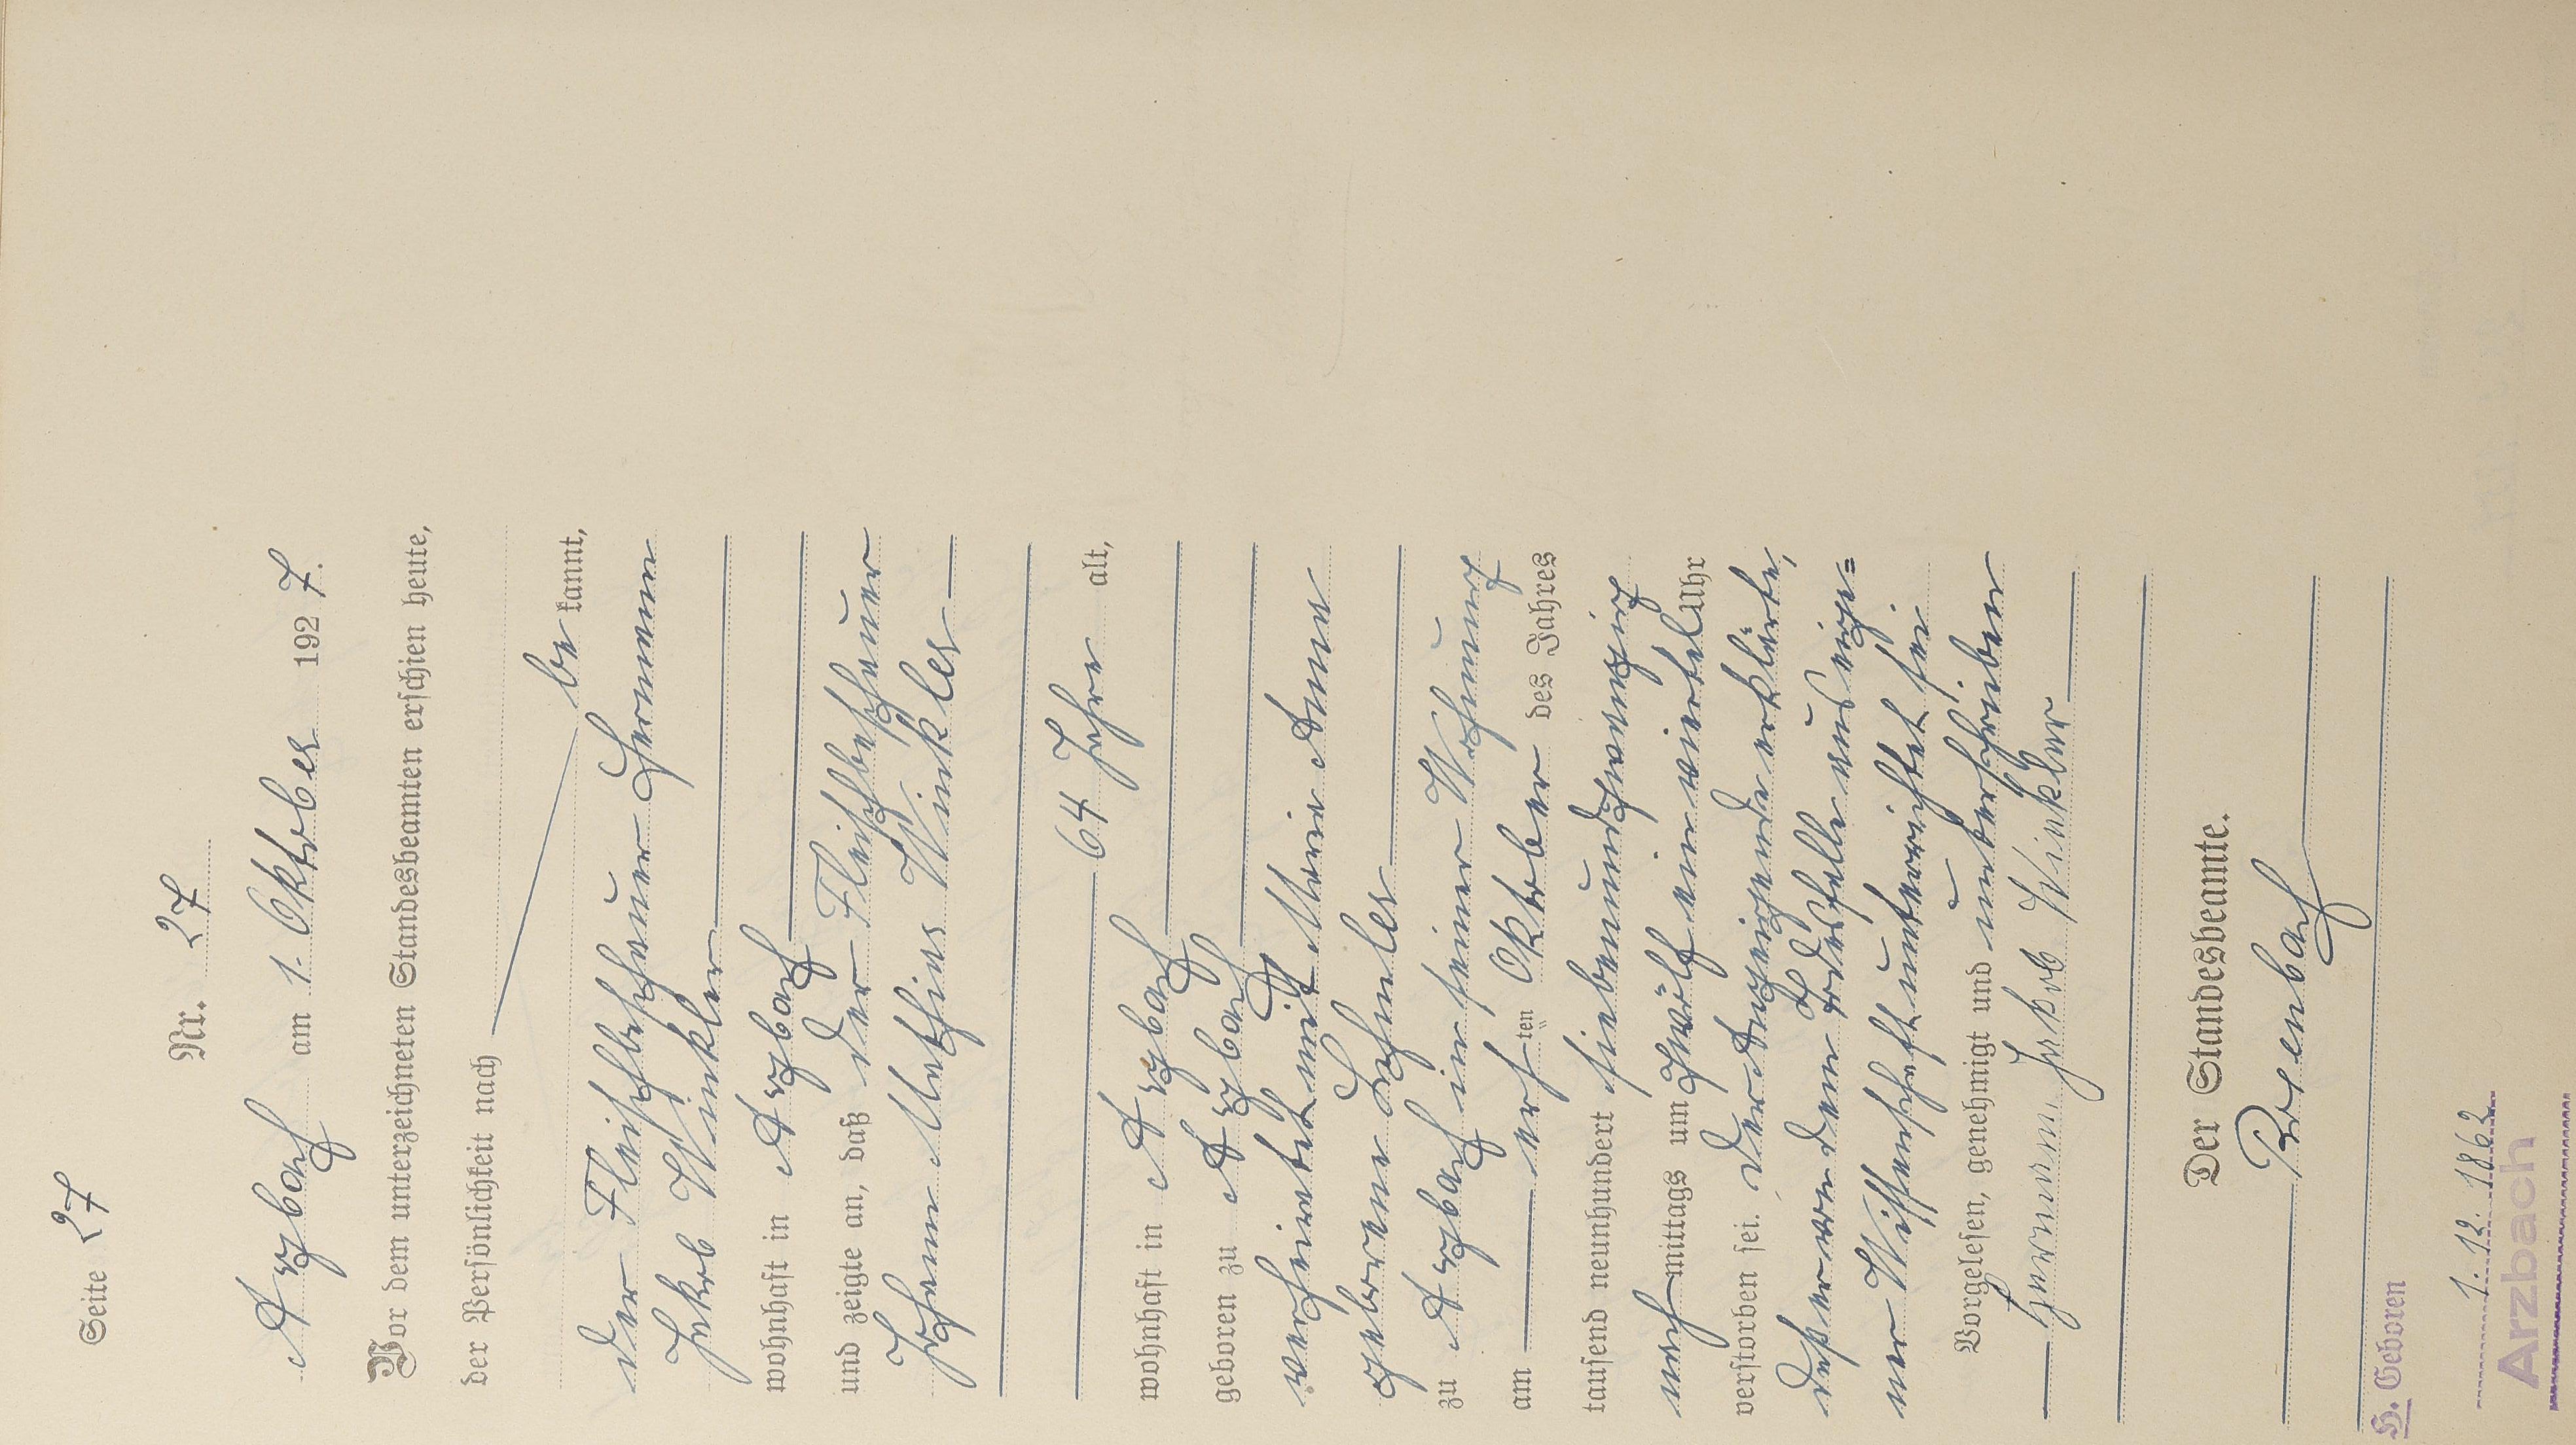 Seite 27
Nr. 27
Arzbach am 1. Oktober 1927.
Vor dem unterzeichneten Standesbeamten erschien heute,
der Persönlichkeit nach
be kannt,
der Fleischbeschauer Hermann
Jakob Winkler
wohnhaft in Arzbach
und zeigte an, daß der Fleischbeschauer
Johann Mathias Winkler
64 Jahre alt,
wohnhaft in Arzbach
geboren zu Arzbach
verheiratet mit Maria Anna
geborene
zu Arzbach in seiner Wohnung
am ersten Oktober des Jahres
tausend neunhundert siebenundzwanzig
nachmittags um zwölf einviertel Uhr
verstorben sei. Der Anzeigende erklärte,
daß er von dem Todesfalle aus eige=
ner Wissenschaft unterrichtet sei
Vorgelesen, genehmigt und unterschrieben
Hermann Jakob Winkler
Der Standesbeamte.
Rosenbach
H. Geboren
1. 12. 1862
Arzbach